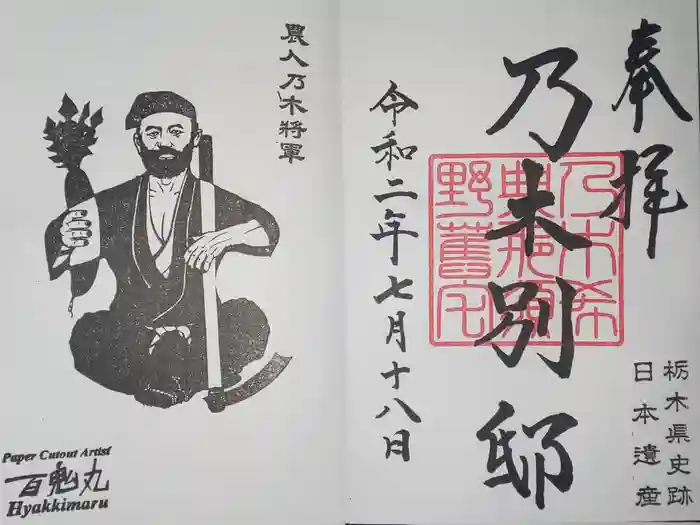 奉拝
栃木県史跡
日本遺産
乃木別邸
乃木希
典那須
野舊宅
令和二年七月十八日
農人乃木將軍
Paper Cutout Artist
百鬼丸
Hyakkimaru